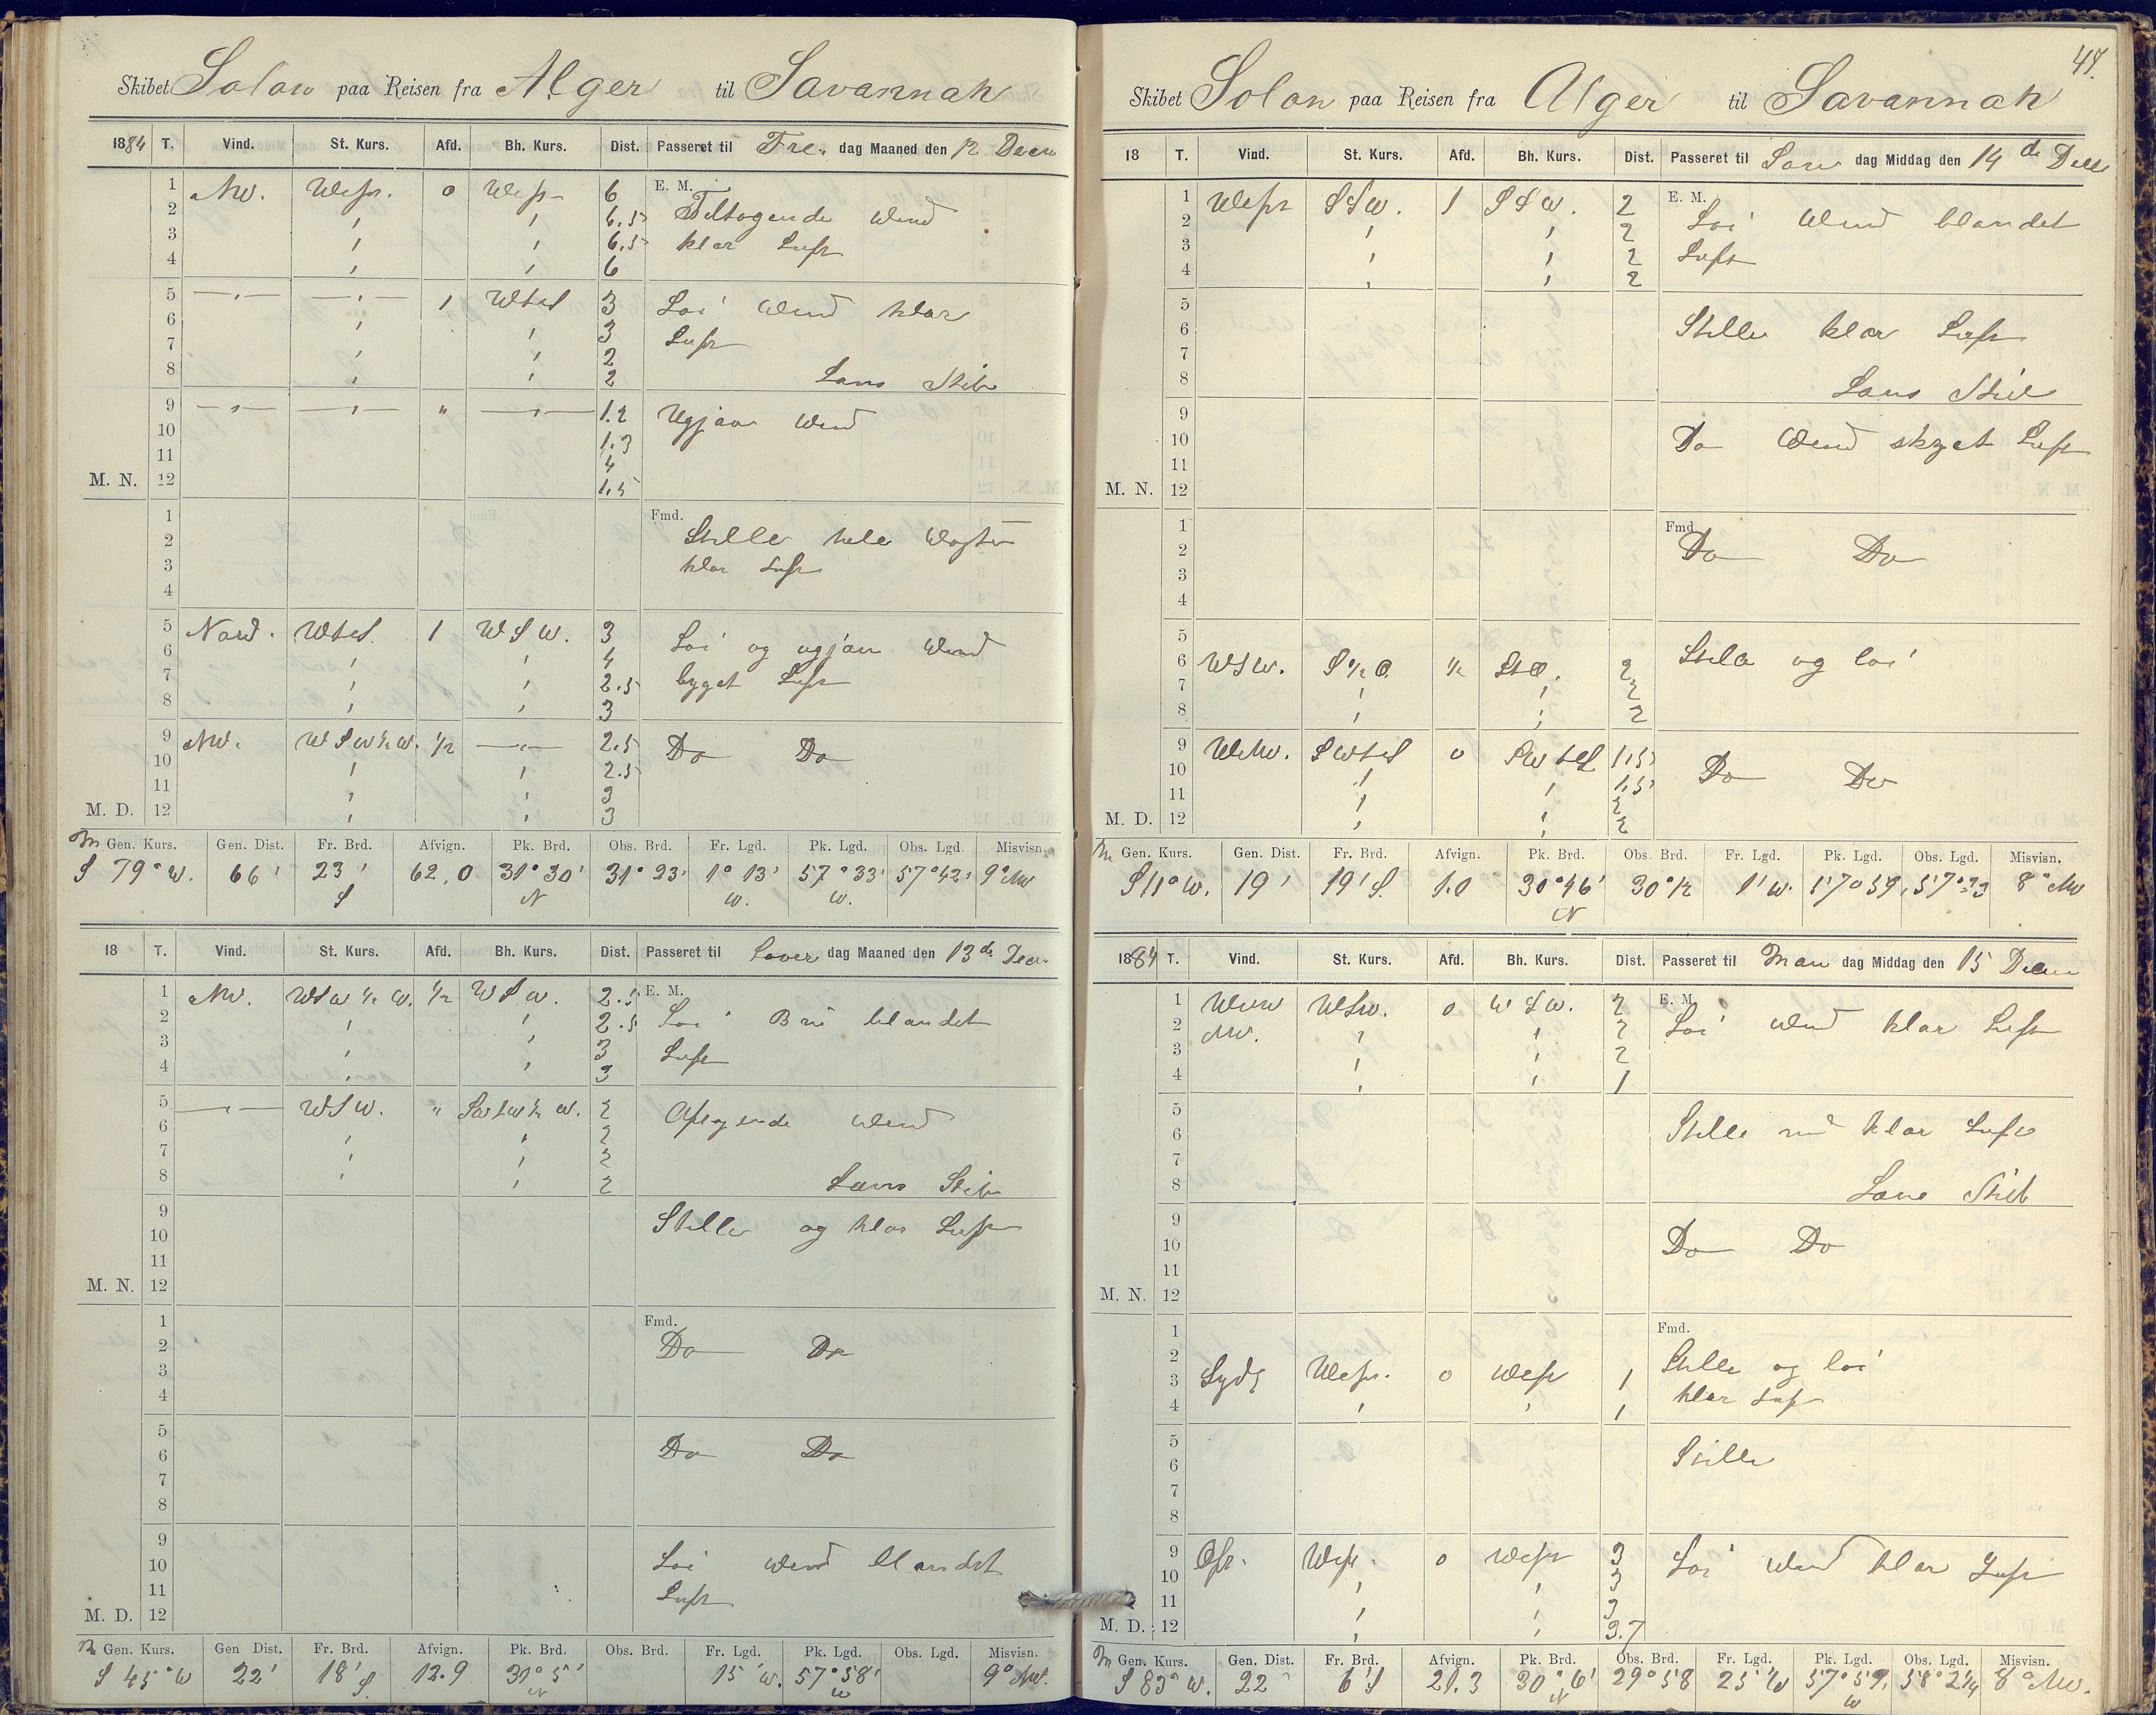 Skibet Solon paa Reisen fra Alger til Savannah
1884 T. Vind. St. Kurs. Afd. Bh. Kurs. Dist. Passeret til Fre. dag Maaned den 12 Decm
1 NW. West. 0 West 6 E. M.
2 " " 6.5 Tiltagende Wind
3 " " 6.5 klar Luft
4 " " 6
5 —"— —"— 1 WtS 3 Loi Wind klar
6 " " 3 Luft
7 " " 2
8 " " 2 Lans Stib
9 —"— —"— " —"— 1.2 Ugjæv Wind
10 1.3
11 4
M. N. 12 1.5
1 Fmd.
2 Stille hele Wagten
3 klar Luft
4
5 Nord. WtS. 1 WSW. 3
6 " " 4 Loi og ugjæv Wind
7 " " 2.5 byget Luft
8 " " 3
9 NW. WSW½W. ½ —"— 2.5 Do Do
10 " " 2.5
11 " " 3
M. D. 12 " " 3
m Gen. Kurs. Gen. Dist. Fr. Brd. Afvign. Pk. Brd. Obs. Brd. Fr. Lgd. Pk. Lgd. Obs. Lgd. Misvisn.
S 79° W. 66' 23' S 62,0 31° 30' N 31° 23' 1° 13' W. 57° 33' W. 57° 42' 9° NW
18 T. Vind. St. Kurs. Afd. Bh. Kurs. Dist. Passeret til Løver dag Maaned den 13de Decm
1 NW. WSW ½ W. ½ WSW. 2.5 E. M.
2 " " 2.5 Loi Bris blandet
3 " " 3 Luft
4 " " 3
5 —"— WSW. " SWtW½W. 2
6 " " 2 Aftagende Wind
7 " " 2
8 " " 2 Lans Stib
9 Stille og klar Luft
10
11
M. N. 12
1 Fmd.
2 Do Do
3
4
5
6 Do Do
7
8
9
10 Loi Wind blandet
11 Luft
M. D. 12
m Gen. Kurs. Gen Dist. Fr. Brd. Afvign. Pk. Brd. Obs. Brd. Fr. Lgd. Pk. Lgd. Obs. Lgd. Misvisn.
S 45° W 22' 18' S. 12.9 31° 5' N 15' W. 57° 58' W 9° NW.
47.
Skibet Solon paa Reisen fra Alger til Savannah
18 T. Vind. St. Kurs. Afd. Bh. Kurs. Dist. Passeret til Søn dag Middag den 14de Decm
1 West SSW. 1 SSW. 2 E. M.
2 " " 2 Loi Wind blandet
3 " " 2 Luft
4 " " 2
5
6 Stille klar Luft
7
8 Lans Stib
9
10 Do Wind skyet Luft
11
M. N. 12
1 Fmd
2 Do Do
3
4
5
6 WSW. S½O. ½ StO. 2 Stille og loi
7 " " 2
8 " " 2
9 WNW. SWtS 0 SWtS 1,5
10 " " 1,5 Do Do
11 " " 2
M. D. 12 " " 2
m Gen. Kurs. Gen. Dist. Fr. Brd. Afvign. Pk. Brd. Obs. Brd. Fr. Lgd. Pk. Lgd. Obs. Lgd. Misvisn.
S 11° W. 19' 19' S. 1.0 30° 46' N 30° 1' W. 57° 59, 57° 8° NW
1884 T. Vind. St. Kurs. Afd. Bh. Kurs. Dist. Passeret til Man dag Middag den 15 Decm
1 WNW WSW. 0 WSW. 2 E. M
2 NW. " " 2 Loi Wind klar Luft
3 " " 2
4 " " 1
5
6 Stille med klar Luft
7
8 Lans Stib
9
10 Do Do
11
M. N. 12
1 Fmd.
2 Stille og loi
3 Sydl West. 0 West 1
4 " " 1 klar Luft
5
6 Stille
7
8
9 Ost. West. 0 West 3
10 " " 3 Loi Wind klar Luft
11 " " 3
M. D. 12 " " 3.7
m Gen. Kurs. Gen. Dist. Fr. Brd. Afvign. Pk. Brd. Obs. Brd. Fr. Lgd. Pk. Lgd. Obs. Lgd. Misvisn.
S 83° W. 22 6'S 21.3 30° 6' N 29° 58 25' W 57° 59, W 58° 24 8° NW.